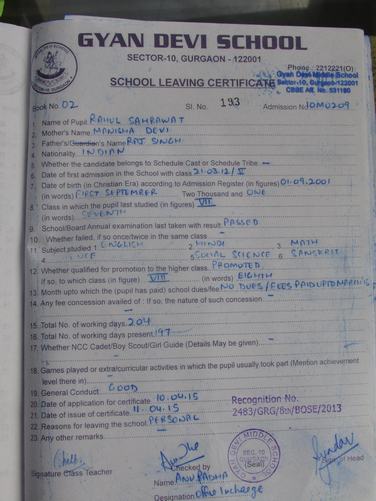 GYAN DEVI SCHOOL
SECTOR-10, GURGAON - 122001
Phone : 2212221(O)
SCHOOL LEAVING CERTIFICATE
Gyan Devi Middle School
Sector-10, Gurgaon-122001
CBSE Aff. No. 531180
Book No. 02 Sl. No. 193 Admission No. DM0209
1. Name of Pupil RAHUL SAHRAWAT
2. Mother's Name MANISHA DEVI
3. Father's/Guardian's Name RAJ SINGH
4. Nationality INDIAN
5. Whether the candidate belongs to Schedule Cast or Schedule Tribe —
6. Date of first admission in the School with class 21.03.12/V
7. Date of birth (in Christian Era) according to Admission Register (in figures) 01.09.2001
(in words) FIRST SEPTEMBER Two Thousand and ONE
8. Class in which the pupil last studied (in figures) VII
(in words) SEVENTH
9. School/Board Annual examination last taken with result PASSED
10. Whether failed, if so once/twice in the same class —
11. Subject studied 1 ENGLISH 2 HINDI 3 MATH
4 5 SOCIAL SCIENCE 6 SANSKRIT
12. Whether qualified for promotion to the higher class PROMOTED
If so, to which class (in figure) VIII (in words) EIGHTH
13. Month upto which the (pupil has paid) school dues/fee NO DUES/FEES PAID UPTO MARCH'15
14. Any fee concession availed of : If so, the nature of such concession
—
15. Total No. of working days 204
16. Total No. of working days present 197
17. Whether NCC Cadet/Boy Scout/Girl Guide (Details May be given)
—
18. Games played or extra/curricular activities in which the pupil usually took part (Mention achievement
level there in) —
19. General Conduct GOOD
20. Date of application for certificate 10.04.15
21. Date of issue of certificate 11.04.15
22. Reasons for leaving the school PERSONAL
23. Any other remarks —
Recognition No.
2483/GRG/8th/BOSE/2013
GYAN DEVI MIDDLE SCHOOL
SEC. 10
(Seal)
Signature Class Teacher
Checked by
Name ANURADHA
Designation Office Incharge
of Head